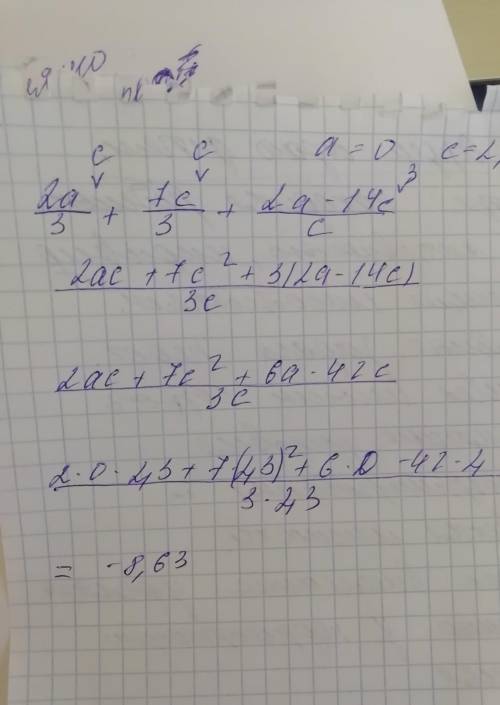 a = 0 c = 2,
c c 3
2a/3 + 7c/3 + 2a - 14c/c
2ac + 7c² + 3(2a - 14c)/3c
2ac + 7c² + 6a - 42c/3c
2·0·2,3 + 7(2,3)² + 6·0 - 42·2/3·2,3
= -8,63